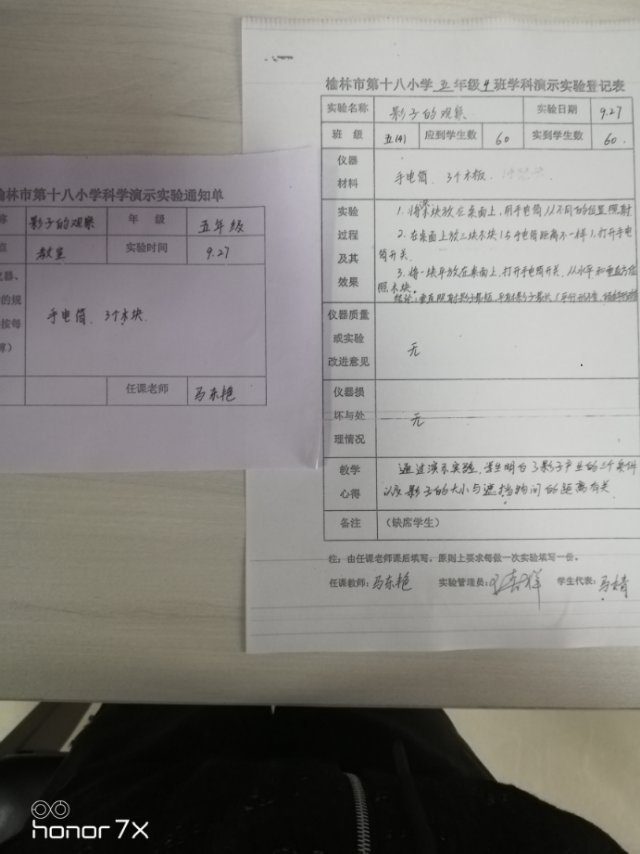 榆林市第十八小学科学演示实验通知单
称 影子的观察 年 级 五年级
点 教室 实验时间 9.27
仪器、
的规
按每
算)
手电筒、3个木块.
任课老师 马东艳
榆林市第十八小学五年级4班学科演示实验登记表
实验名称 影子的观察 实验日期 9.27
班 级 五(4) 应到学生数 60 实到学生数 60.
仪器
材料
手电筒、3个木板.
实验
过程
及其
效果
1. 将木块放在桌面上,用手电筒从不同的位置照射
2. 在桌面上放三块木块(与手电距离不一样),打开手电
筒开关.
3. 将一块平放在桌面上,打开手电筒开关,从水平和垂直方位
照木块。
仪器质量
或实验
改进意见
无
仪器损
坏与处
理情况
无
教学
心得
通过演示实验,学生明白了影子产生的三个条件
以及影子的大小与遮挡物间的距离有关.
备注 (缺席学生)
注:由任课老师课后填写,原则上要求每做一次实验填写一份。
任课教师:马东艳 实验管理员: 学生代表:
honor 7X